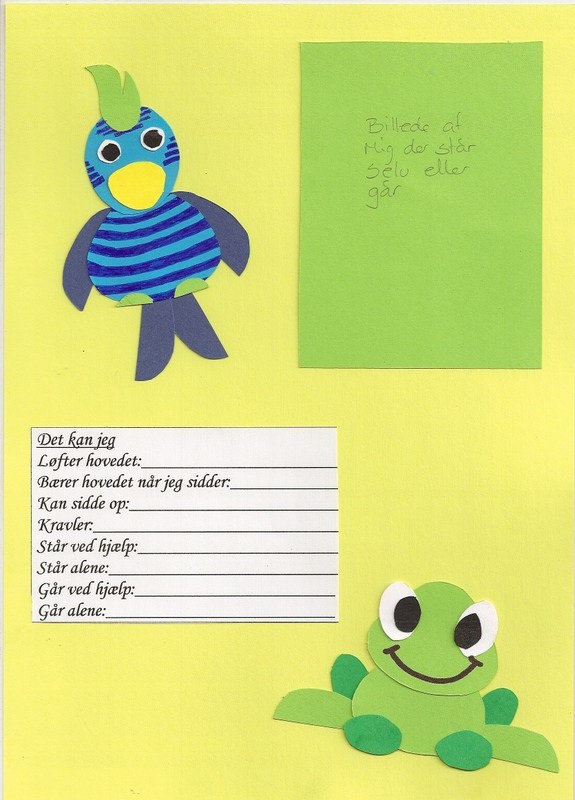 Billede af
Mig der står
selv eller
går
Det kan jeg
Løfter hovedet:
Bærer hovedet når jeg sidder:
Kan sidde op:
Kravler:
Står ved hjælp:
Står alene:
Går ved hjælp:
Går alene: